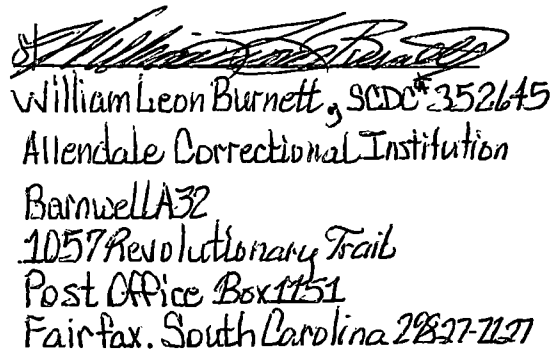 s/William Leon Burnett
William Leon Burnett, SCDC# 352645
Allendale Correctional Institution
Barnwell A32
1057 Revolutionary Trail
Post Office Box 1151
Fairfax, South Carolina 29827-7127